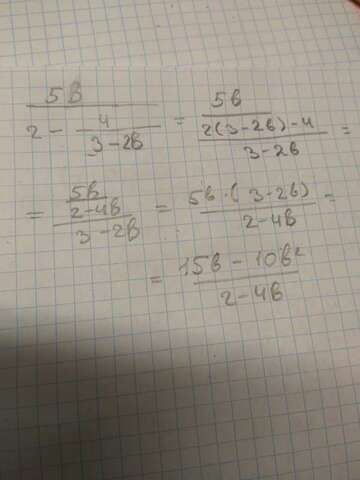 5в / (2 - 4/(3-2в)) = 5в / ((2(3-2в)-4)/(3-2в)) =
= 5в / ((2-4в)/(3-2в)) = 5в·(3-2в) / (2-4в) =
= 15в - 10в² / (2-4в)